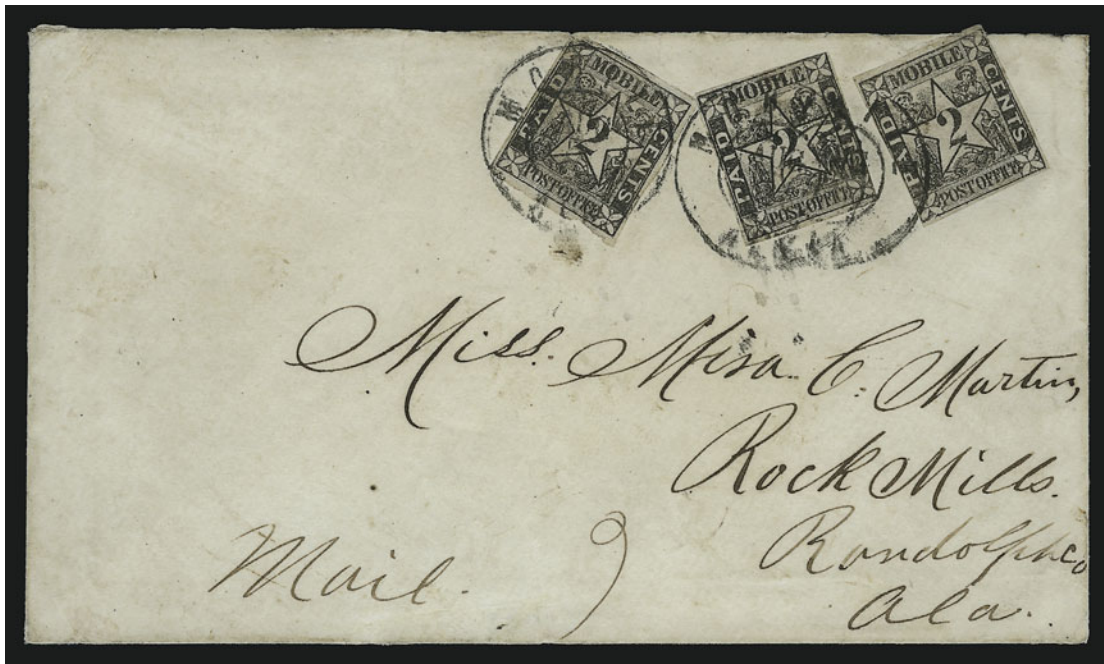 MOBILE
PAID 2 CENTS
POST OFFICE
MOBILE
PAID 2 CENTS
POST OFFICE
MOBILE
PAID 2 CENTS
POST OFFICE
Miss. Misa. C. Martin,
Rock Mills.
Randolph Co
Mail.
Ala.